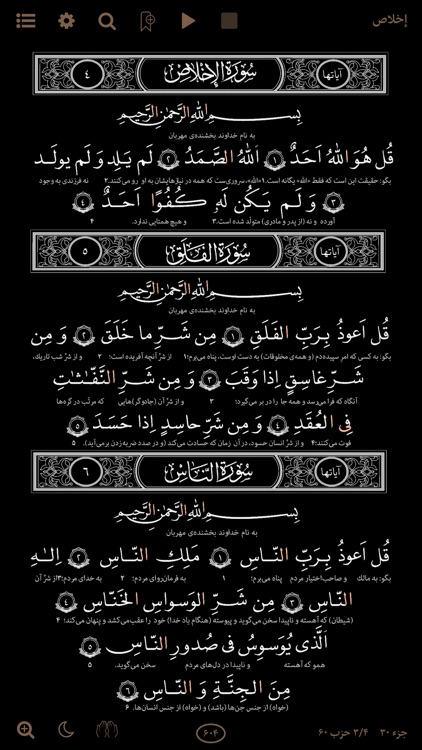 إخلاص
سُورَةُ الإِخلَاصِ آیاتها ٤
بِسمِ اللهِ الرَّحمٰنِ الرَّحیمِ
به نام خداوند بخشنده‌ی مهربان
قُل هُوَ اللهُ اَحَدٌ ١ اَللهُ الصَّمَدُ ٢ لَم یَلِد وَ لَم یولَد
بگو: حقیقت این است که فقط «الله» یگانه است.۱ «الله»، سروری‌ست که همه در نیازهایشان به او رو می‌کنند.۲ نه فرزندی به وجود
٣ وَ لَم یَکُن لَهٗ کُفُوًا اَحَدٌ ٤
آورده و نه (از پدر و مادری) متولّد شده است.۳ و هیچ همتایی ندارد. ۴
آیاتها سُورَةُ الفَلَقِ ٥
بِسمِ اللهِ الرَّحمٰنِ الرَّحیمِ
به نام خداوند بخشنده‌ی مهربان
قُل اَعوذُ بِرَبِّ الفَلَقِ ١ مِن شَرِّ ما خَلَقَ ٢ وَ مِن
بگو: به کسی که امرِ سپیده‌دم (و همه‌ی مخلوقات) به دست اوست، پناه می‌برم؛۱ از شرِّ آنچه آفریده است؛ ۲ و از شرِّ شب تاریک،
شَرِّ غاسِقٍ اِذا وَقَبَ ٣ وَ مِن شَرِّ النَّفّٰثٰتِ
آنگاه که فرا می‌رسد و همه جا را در بر می‌گیرد؛ ۳ و از شرِّ آن (جادوگر)هایی که مرتّب در گره‌ها
فِی العُقَدِ ٤ وَ مِن شَرِّ حاسِدٍ اِذا حَسَدَ ٥
فوت می‌کنند؛۴ و از شرِّ انسان حسود، در آن زمان که حسادت می‌کند (و در صدد ضربه زدن برمی‌آید). ۵
آیاتها سُورَةُ النَّاسِ ٦
بِسمِ اللهِ الرَّحمٰنِ الرَّحیمِ
به نام خداوند بخشنده‌ی مهربان
قُل اَعوذُ بِرَبِّ النّاسِ ١ مَلِکِ النّاسِ ٢ اِلٰـهِ
بگو: به مالک و صاحب‌اختیار مردم پناه می‌برم؛ ۱ به فرمان‌روای مردم؛ ۲ به خدای مردم؛۳ از شرِّ آن
النّاسِ ٣ مِن شَرِّ الوَسواسِ الخَنّاسِ ٤
(شیطان) که آهسته و ناپیدا سخن می‌گوید و پیوسته (هنگام یاد خدا) خود را عقب می‌کشد و پنهان می‌کند؛ ۴
اَلَّذی یُوَسوِسُ فی صُدورِ النّاسِ ٥
همو که آهسته و ناپیدا در دل‌های مردم سخن می‌گوید. ۵
مِنَ الجِنَّةِ وَ النّاسِ ٦
(خواه) از جنس جن‌ها (باشد) و (خواه) از جنس انسان‌ها. ۶
جزء ۳۰ ۳/۴ حزب ۶۰ ۶۰۴